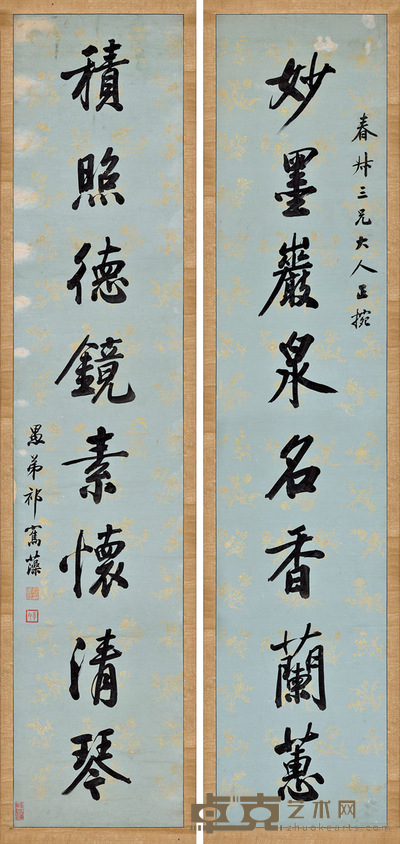 春卅三兄大人正捥
妙墨巖泉名香蘭蕙
積照德鏡素懷清琴
愚弟祁寯藻
卓克艺术网
zhuokearts.com